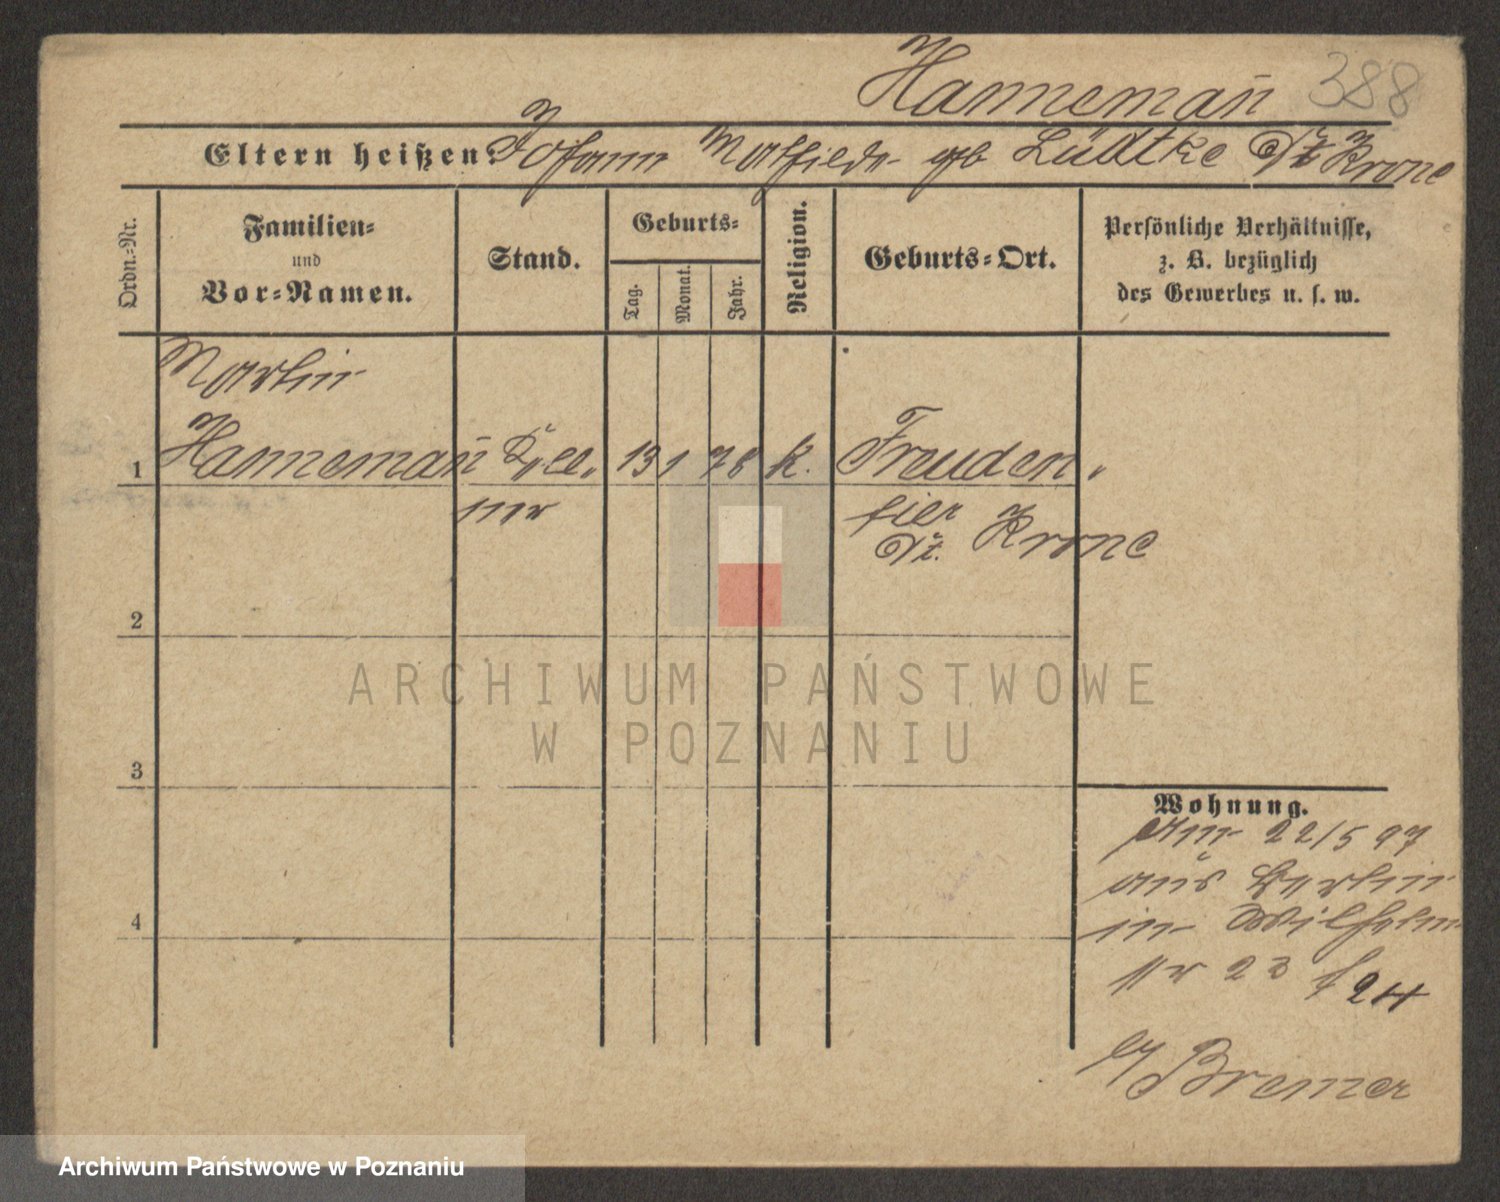 Hannemañ 388
Eltern heißen: Johann Mathilde geb Lüdtke Dt Krone
Ordn.-Nr.
Familien-
und
Vor-Namen.
Stand.
Geburts-
Tag.
Monat.
Jahr.
Religion.
Geburts-Ort.
Persönliche Verhältnisse,
z. B. bezüglich
des Gewerbes u. s. w.
Martin
1 Hannemañ Kell- 13 1 78 k. Freuden-
ner fier
Dt. Krone
2
3
4
Wohnung.
22/5 97
aus Berlin
in Wilhelm
str 23 24
b/ Bremer
ARCHIWUM PAŃSTWOWE
W POZNANIU
Archiwum Państwowe w Poznaniu